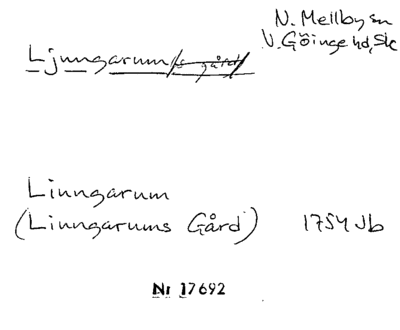 N. Mellby sn
V. Göinge hd, Sk
Ljungarum/s gård/
Linngarum
(Linngarums Gård) 1754 Jb
Nr 17692